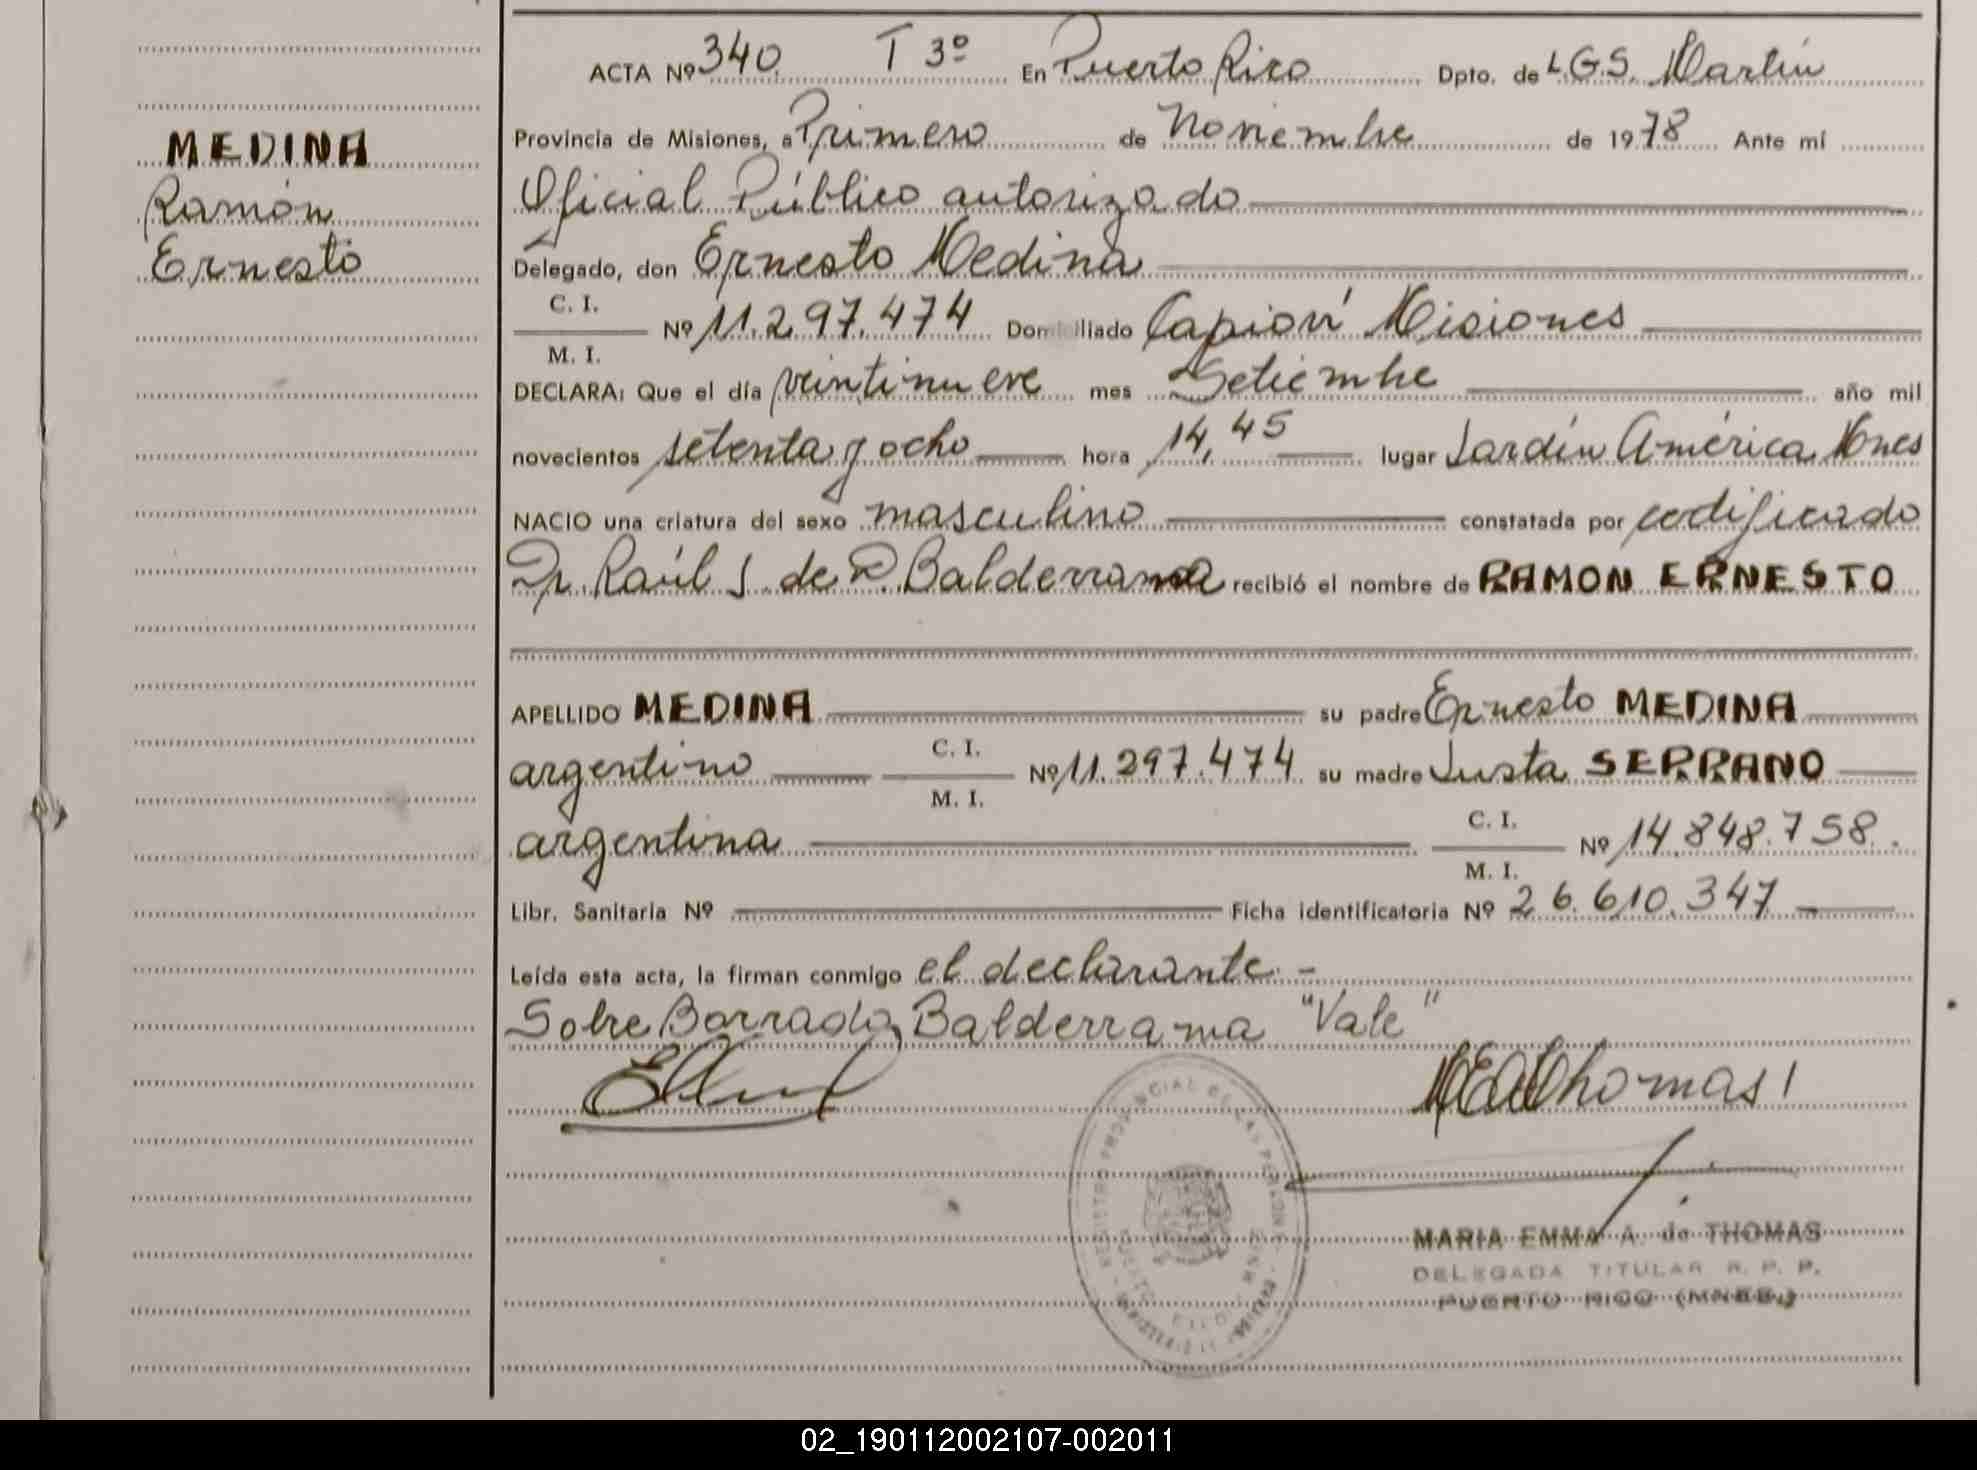 ACTA Nº 340 T 3º En Puerto Rico Dpto. de L.G.S. Martín
Provincia de Misiones, a Primero de Noviembre de 1978 Ante mí
Oficial Público autorizado
Delegado, don Ernesto Medina
C. I.
Nº 11.297.474 Domiciliado Capioví Misiones
M. I.
DECLARA: Que el día veintinueve mes Setiembre año mil
novecientos setenta y ocho hora 14,45 lugar Jardín América Mnes
NACIO una criatura del sexo masculino constatada por codificado
Dr. Raúl J. de R. Balderrama recibió el nombre de RAMON ERNESTO
APELLIDO MEDINA su padre Ernesto MEDINA
argentino C. I. Nº 11.297.474 su madre Justa SERRANO
M. I.
argentina C. I. Nº 14.848.758.
M. I.
Libr. Sanitaria Nº Ficha identificatoria Nº 26.610.347
Leída esta acta, la firman conmigo el declarante.-
Sobre Borrado, Balderrama "Vale"
MEAdeThomas
MARIA EMMA A. de THOMAS
DELEGADA TITULAR R. P. P.
PUERTO RICO (MNES.)
REGISTRO PROVINCIAL DE LAS PERSONAS
MEDINA
Ramón
Ernesto
02_190112002107-002011